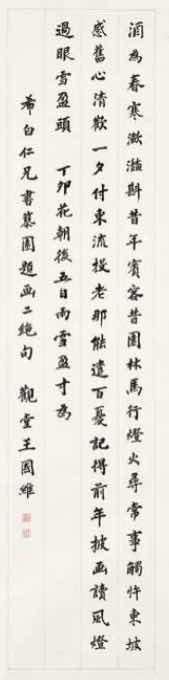 酒為春寒潋灔斟昔年賓客昔園林馬行燈火尋常事觸忤東坡
感舊心清歡一夕付東流投老那能遣百憂記得前年披画讀風燈
過眼雪盈頭　丁卯花朝後五日雨雪盈寸為
希白仁兄書慕園題画二絕句　觀堂王國維